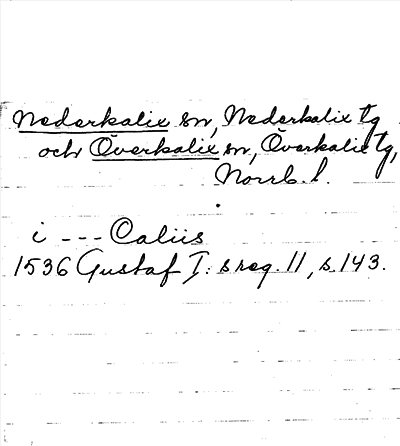 Nederkalix sn, Nederkalix tg
och Överkalix sn, Överkalix tg,
Norrb. l.
i --- Caliis
1536 Gustaf I: s reg. 11, s. 143.